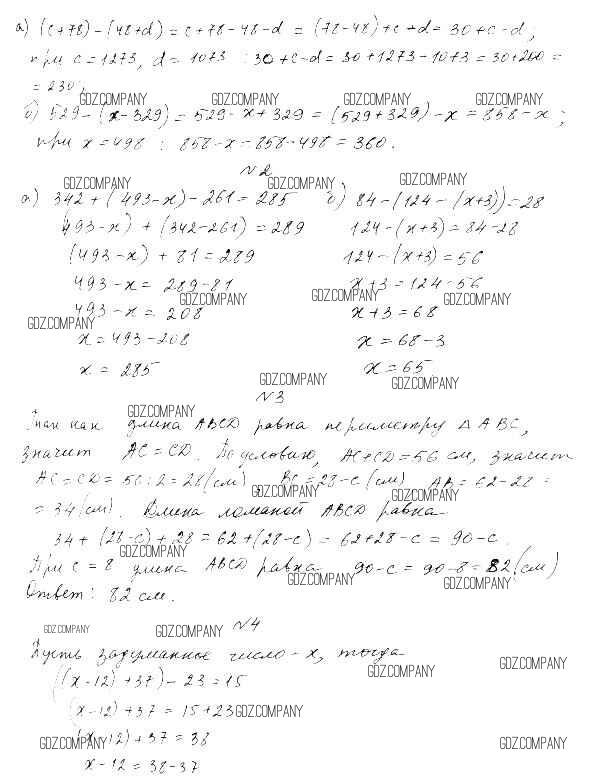 а) (c+78)-(48+d)=c+78-48-d=(78-48)+c+d=30+c-d;
при c=1273, d=1073 : 30+c-d=30+1273-1073=30+200=
=230;
GDZ.COMPANY GDZ.COMPANY GDZ.COMPANY GDZ.COMPANY
б) 529-(x-329)=529-x+329=(529+329)-x=858-x;
при x=498 : 858-x=858-498=360.
N2
GDZ.COMPANY GDZ.COMPANY GDZ.COMPANY
а) 342+(493-x)-261=285
(493-x)+(342-261)=289
(493-x)+81=289
493-x=289-81
GDZ.COMPANY
493-x=208
GDZ.COMPANY
x=493-208
x=285
б) 84-(124-(x+3))=28
124-(x+3)=84-28
124-(x+3)=56
x+3=124-56
GDZ.COMPANY GDZ.COMPANY
x+3=68
x=68-3
x=65
GDZ.COMPANY GDZ.COMPANY
N3
GDZ.COMPANY
Так как длина ABCD равна периметру △ABC,
значит AC=CD. По условию, AC+CD=56 см, значит
AC=CD=56:2=28(см) BC=28-c(см) AB=62-28=
GDZ.COMPANY GDZ.COMPANY
=34(см). Длина ломаной ABCD равна
34+(28-c)+28=62+(28-c)=62+28-c=90-c.
GDZ.COMPANY
При c=8 длина ABCD равна 90-c=90-8=82(см)
GDZ.COMPANY GDZ.COMPANY
Ответ: 82 см.
GDZ.COMPANY GDZ.COMPANY N4
Пусть задуманное число - x, тогда
GDZ.COMPANY GDZ.COMPANY
((x-12)+37)-23=15
(x-12)+37=15+23
GDZ.COMPANY
(x-12)+37=38
GDZ.COMPANY GDZ.COMPANY
x-12=38-37